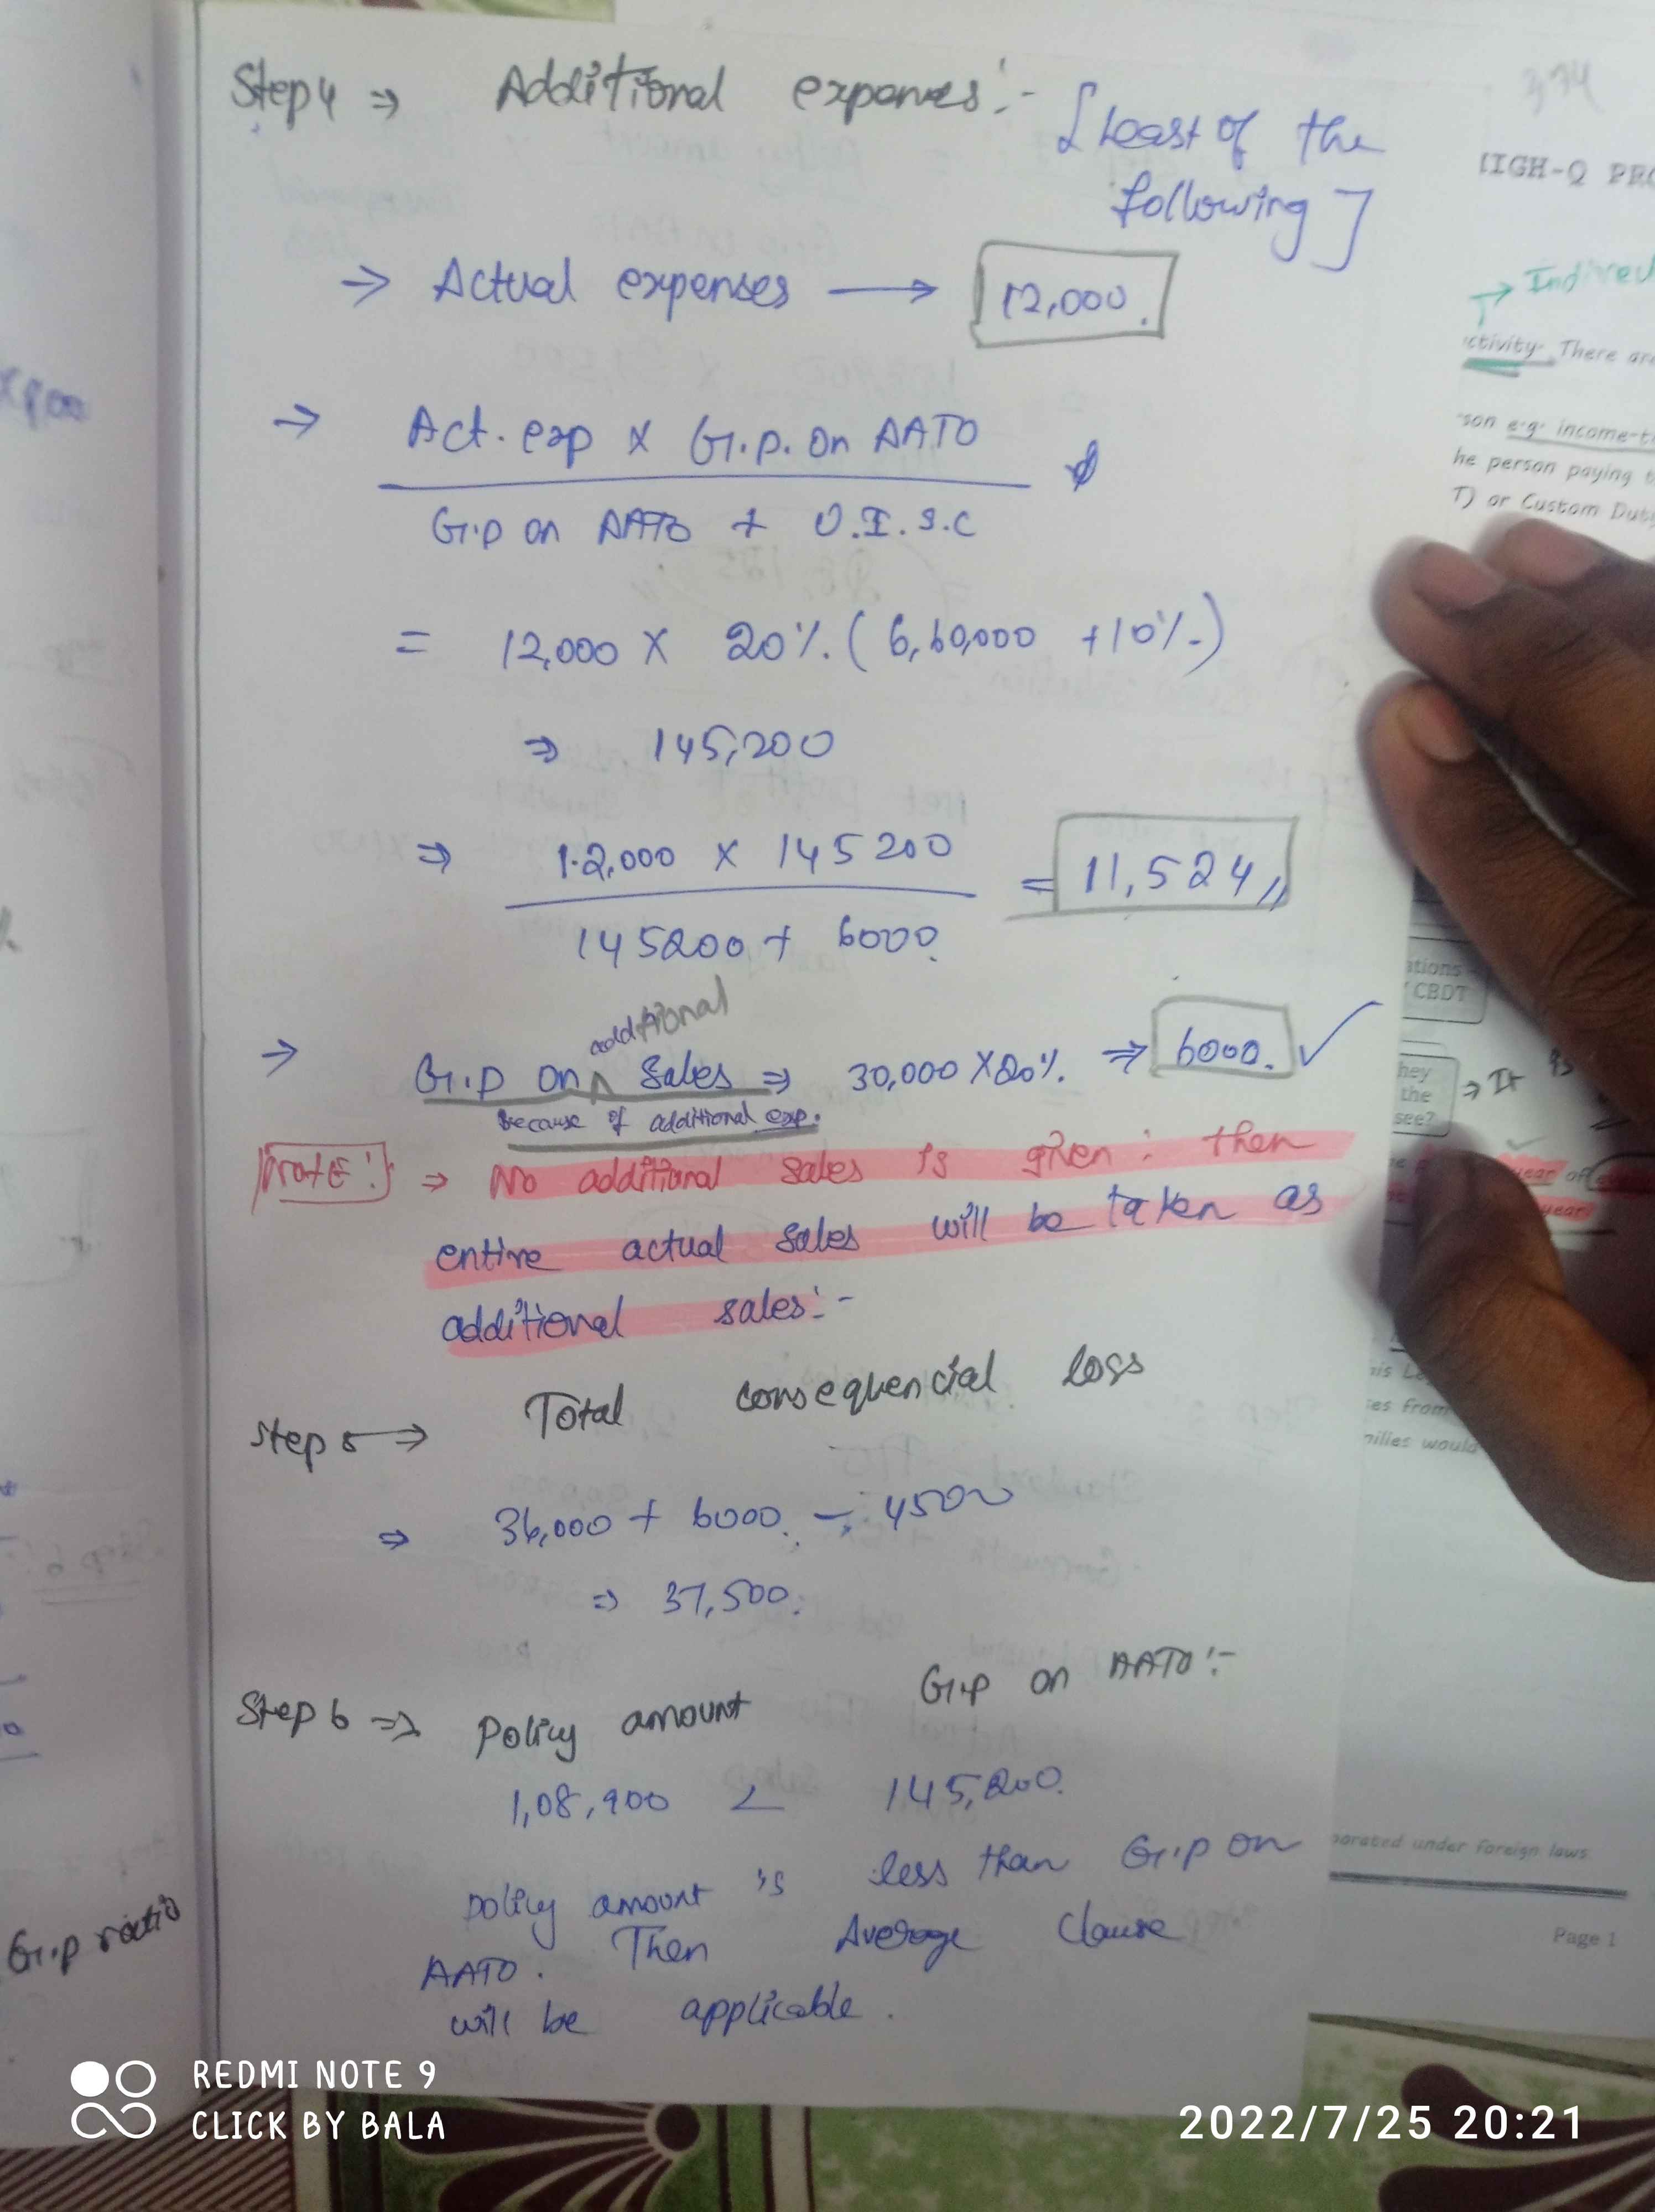 Step 4 ⇒ Additional expenses :- [Least of the
following]
→ Actual expenses → 12,000.
→ Act. exp X G.P. on AATO
G.P on AATO + U.I.S.C
= 12,000 X 20% (6,60,000 + 10%)
⇒ 145,200
⇒ 12,000 X 145200
145200 + 6000
= 11,524
→ G.P on additional sales ⇒ 30,000 X 20% ⇒ 6000. ✓
Because of additional exp.
Note: ⇒ No additional sales is given: then
entire actual sales will be taken as
additional sales:-
Step 5 → Total consequencial loss
⇒ 36,000 + 6000 - 4500
⇒ 37,500.
Step 6 ⇒ Policy amount G.P on AATO :-
1,08,900 < 145,200.
policy amount is less than G.P on
AATO. Then Average Clause
will be applicable.
G.P ratio
374
Indirect
ctivity. There are
son e.g. income-t
he person paying
T) or Custom Duty
ations
CBDT
hey
the
see?
⇒ It is
year of
year
es from
nilies would
porated under foreign laws
Page 1
REDMI NOTE 9
CLICK BY BALA
2022/7/25 20:21